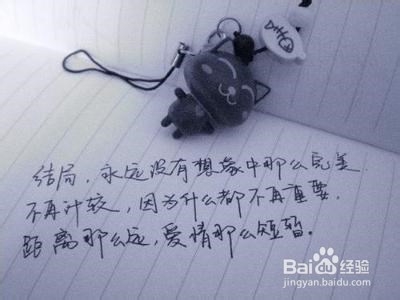 结局，永远没有想象中那么完美
不再计较，因为什么都不再重要.
距离那么远，爱情那么短暂。
Baidu百度经验
jingyan.baidu.com